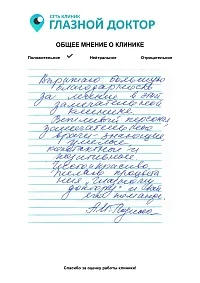 СЕТЬ КЛИНИК
ГЛАЗНОЙ ДОКТОР
ОБЩЕЕ МНЕНИЕ О КЛИНИКЕ
Положительное ✓ Нейтральное Отрицательное
Выражаю большую
благодарность
за лечение в этой
замечательной
клинике.
Вежливый персонал
врачи - знающие,
умелые
контактные и
позитивные.
желаю процвета
ния "Глазному
доктору" и всей
его команде.
Спасибо за оценку работы клиники!